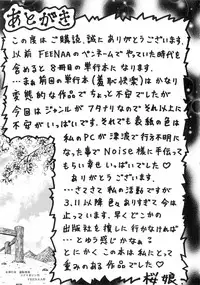 あとがき
この度はご購入、誠にありがとうございます。
以前FEENAAのペンネームでやっていた時代も
含めると8冊目の単行本になります。
…まぁ前回の単行本(羞恥欲家)はかなり
変態的な作品でちょっと不安でしたが
今回はジャンルがフタナリなのでそれ以上に
不安がいっぱいです。それでも表紙の色は
私のPCが津波で行方不明に
なった事でNoise様に手伝って
もらい幸せいっぱいでした♡
ありがとうございます。
…さてさて私の活動ですが
3.11以降色々ありすぎて今は
止っています。早くどこかの
出版社も復しに行かなければ
…とゆう感じかなぁ。
とにかくこの本は私にとって
重みのある作品でした
桜娘